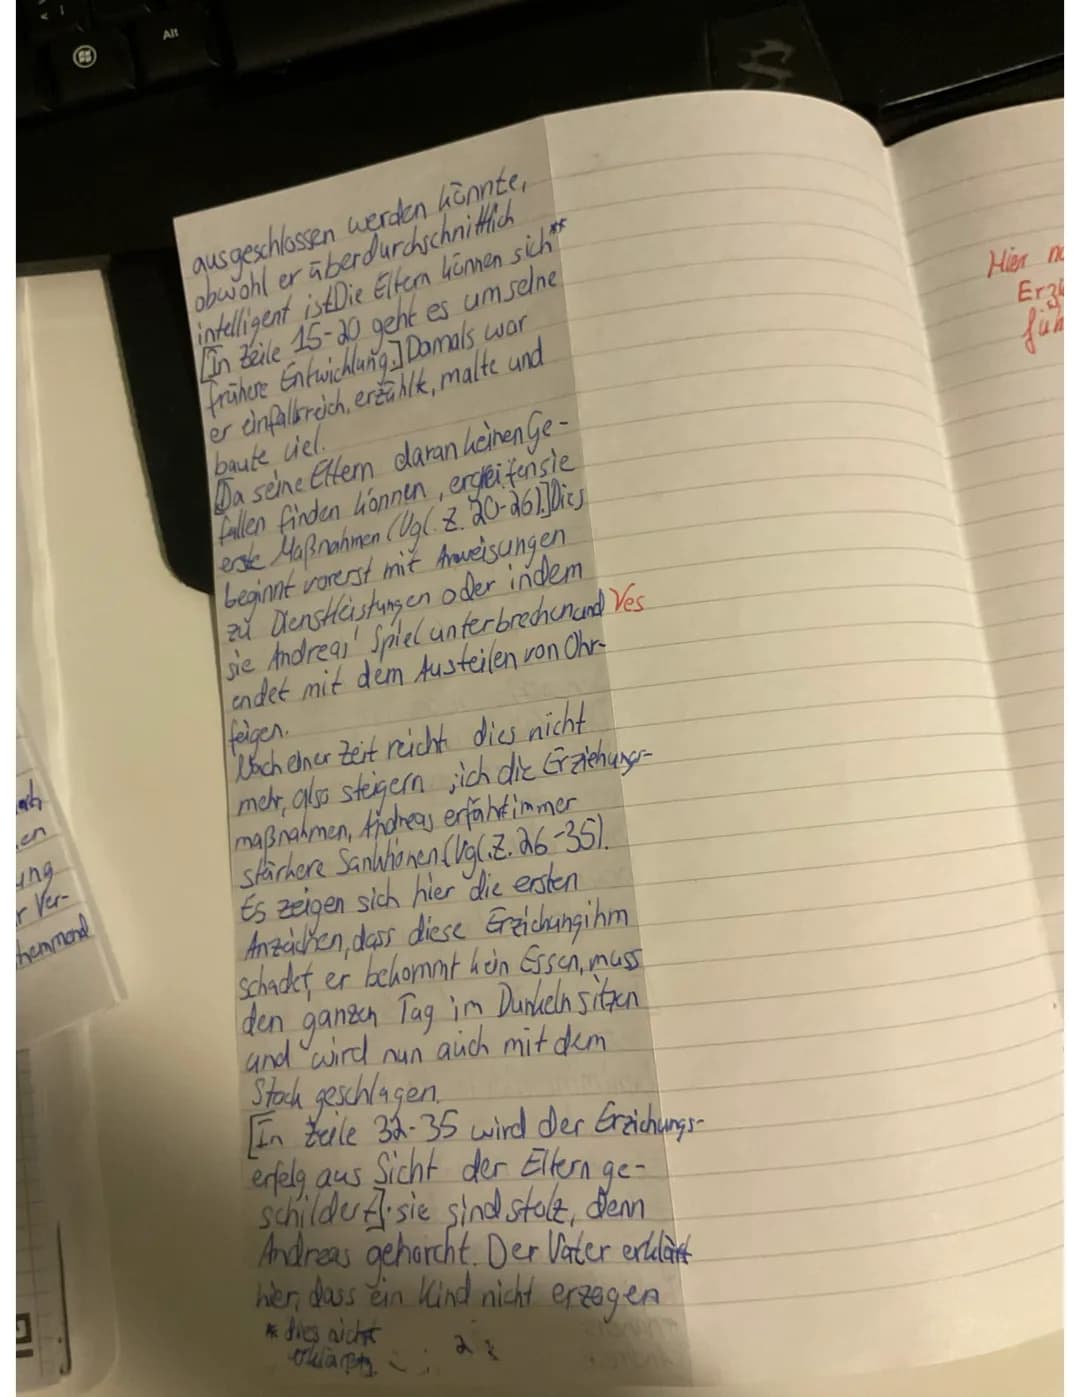 Alt
ausgeschlossen werden könnte,
obwohl er überdurchschnittlich
intelligent ist. Die Eltern können sich**
[In Zeile 15-20 geht es um seine
frühere Entwicklung.] Damals war
er einfallsreich, erzählt, malte und
baute viel.
[Da seine Eltern daran keinen Ge-
fallen finden können, ergreifen sie
erste Maßnahmen (Vgl. Z. 20-26).] Dies
beginnt vorerst mit Anweisungen
zu Dienstleistungen oder indem
sie Andreas' Spiel unterbrechen und Ves
endet mit dem Austeilen von Ohr-
feigen.
Nach einer Zeit reicht dies nicht
mehr, also steigern sich die Erziehungs-
maßnahmen, Andreas erfährt immer
stärkere Sanktionen (Vgl. Z. 26-35).
Es zeigen sich hier die ersten
Anzeichen, dass diese Erziehung ihm
schadet, er bekommt kein Essen, muss
den ganzen Tag im Dunkeln sitzen
und wird nun auch mit dem
Stock geschlagen.
[In Zeile 32-35 wird der Erziehungs-
erfolg aus Sicht der Eltern ge-
schildert]: sie sind stolz, denn
Andreas gehorcht. Der Vater erklärt
hier, dass ein Kind nicht erzogen
* dies nicht
Hier
Erzi
ung
r Ver-
hemmend